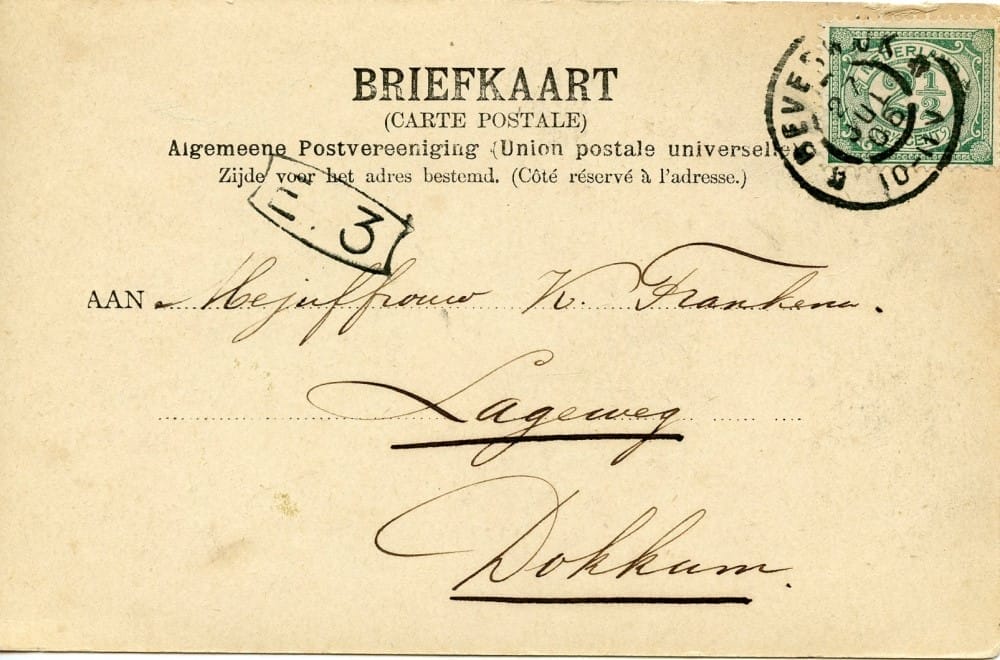 BRIEFKAART
(CARTE POSTALE)
Algemeene Postvereeniging (Union postale universelle
Zijde voor het adres bestemd. (Côté réservé à l'adresse.)
3
AAN Mejuffrouw K. Frankena.
Lageweg
Dokkum.